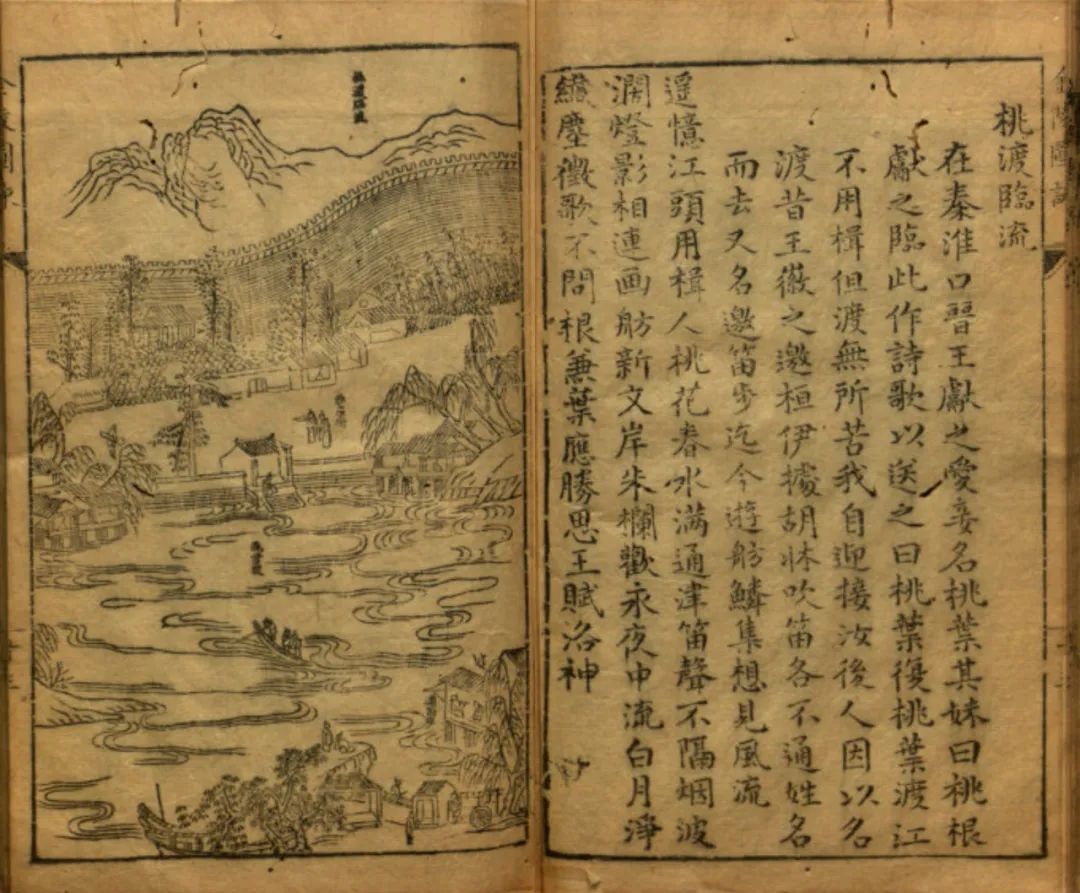 桃渡臨流
在秦淮口晉王獻之愛妾名桃葉其妹曰桃根
獻之臨此作詩歌以送之曰桃葉復桃葉渡江
不用楫但渡無所苦我自迎接汝後人因以名
渡昔王徽之邀桓伊據胡牀吹笛各不通姓名
而去又名邀笛步迄今遊舫鱗集想見風流
遥憶江頭用楫人桃花春水滿通津笛聲不隔烟波
濶燈影相連画舫新文岸朱欄歡永夜中流白月淨
纖塵徵歌不問根兼葉應勝思王賦洛神
桃渡臨流